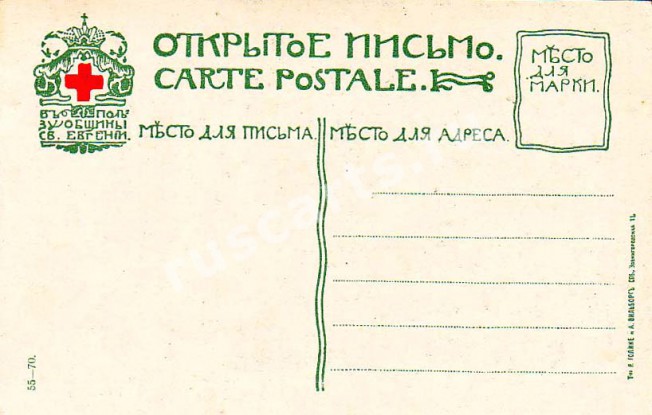 ОТКРЫТОЕ ПИСЬМО.
CARTE POSTALE.
МѢСТО
ДЛЯ
МАРКИ.
ВЪ ПОЛЬ
ЗУ ОБЩИНЫ
СВ. ЕВГЕНІИ.
МѢСТО ДЛЯ ПИСЬМА.
МѢСТО ДЛЯ АДРЕСА.
ruscarts.ru
55—70.
Т-во Р. ГОЛИКЕ и А. ВИЛЬБОРГЪ. СПБ., Звенигородская 11.